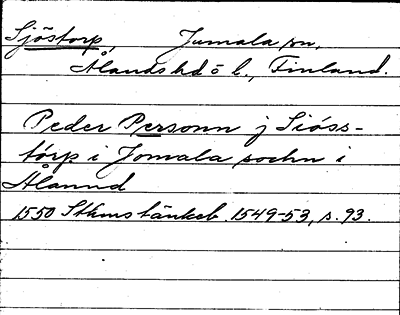 Sjöstorp, Jumala sn,
Ålands hd o l., Finland.
Peder Personn j Sióss-
tórp i Jomala sochn i
Ålannd
1550 Sthms tänkeb. 1549-53, s. 93.